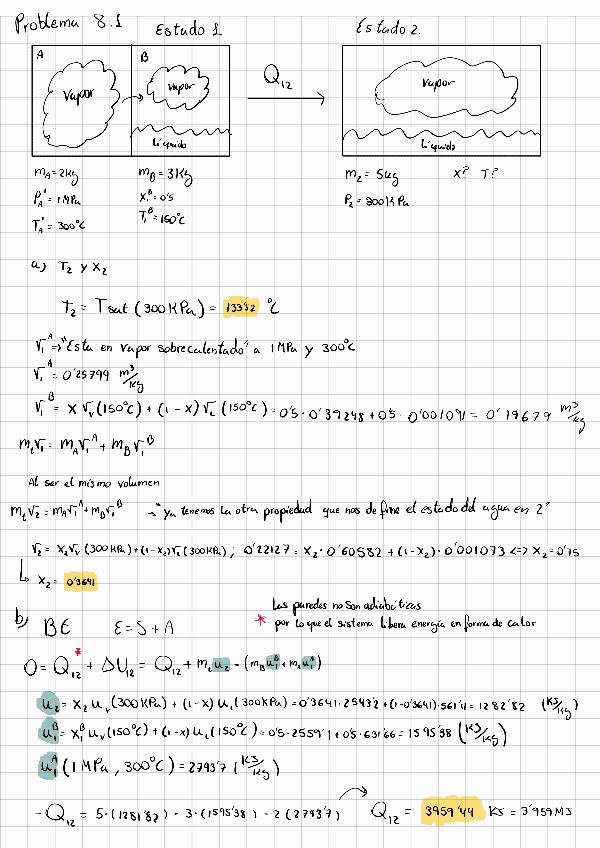 Problema 8.1
Estado 1
Estado 2.
A
B
Vapor
Vapor
Líquido
Q12
Vapor
Líquido
mA = 2Kg
PA¹ = 1MPa
TA¹ = 300°C
mB = 3Kg
X₁ᴮ = 0'5
T₁ᴮ = 150°C
m2 = 5kg X? T?
P2 = 300KPa
a) T2 y X2
T2 = Tsat (300 KPa) = 133'52 °C
V₁ᴬ => "Esta en vapor sobrecalentado" a 1MPa y 300°C
V₁ᴬ = 0'25799 m³/kg
V₁ᴮ = X Vv (150°C) + (1 - X) VL (150°C) = 0'5 · 0'39248 + 0'5 · 0'001091 = 0'19679 m³/kg
mt V1 = mA V₁ᴬ + mB V₁ᴮ
Al ser el mismo volumen
mt V2 = mA V₁ᴬ + mB V₁ᴮ → "ya tenemos la otra propiedad que nos define el estado del agua en 2"
V2 = X2 Vv (300 KPa) + (1-X2) VL (300 KPa); 0'22127 = X2 · 0'60582 + (1-X2) · 0'001073 <=> X2 = 0'75
X2 = 0'3641
b) BE E = S + A
Las paredes no son adiabáticas
* por lo que el sistema libera energía en forma de calor
*
0 = Q12 + ΔU12 = Q12 + mt u2 - (mB u₁ᴮ + mA u₁ᴬ)
u2 = X2 uv (300 KPa) + (1-X) uL (300 KPa) = 0'3641 · 2543'2 + (1-0'3641) · 561'11 = 1282'82 (KJ/Kg)
u₁ᴮ = X₁ᴮ uv (150°C) + (1-X) uL (150°C) = 0'5 · 2559'1 + 0'5 · 631'66 = 1595'38 (KJ/Kg)
u₁ᴬ (1 MPa, 300°C) = 2793'7 (KJ/Kg)
- Q12 = 5 · (1282'82) - 3 · (1595'38) - 2 (2793'7) Q12 = 3959'44 KJ = 3'959 MJ